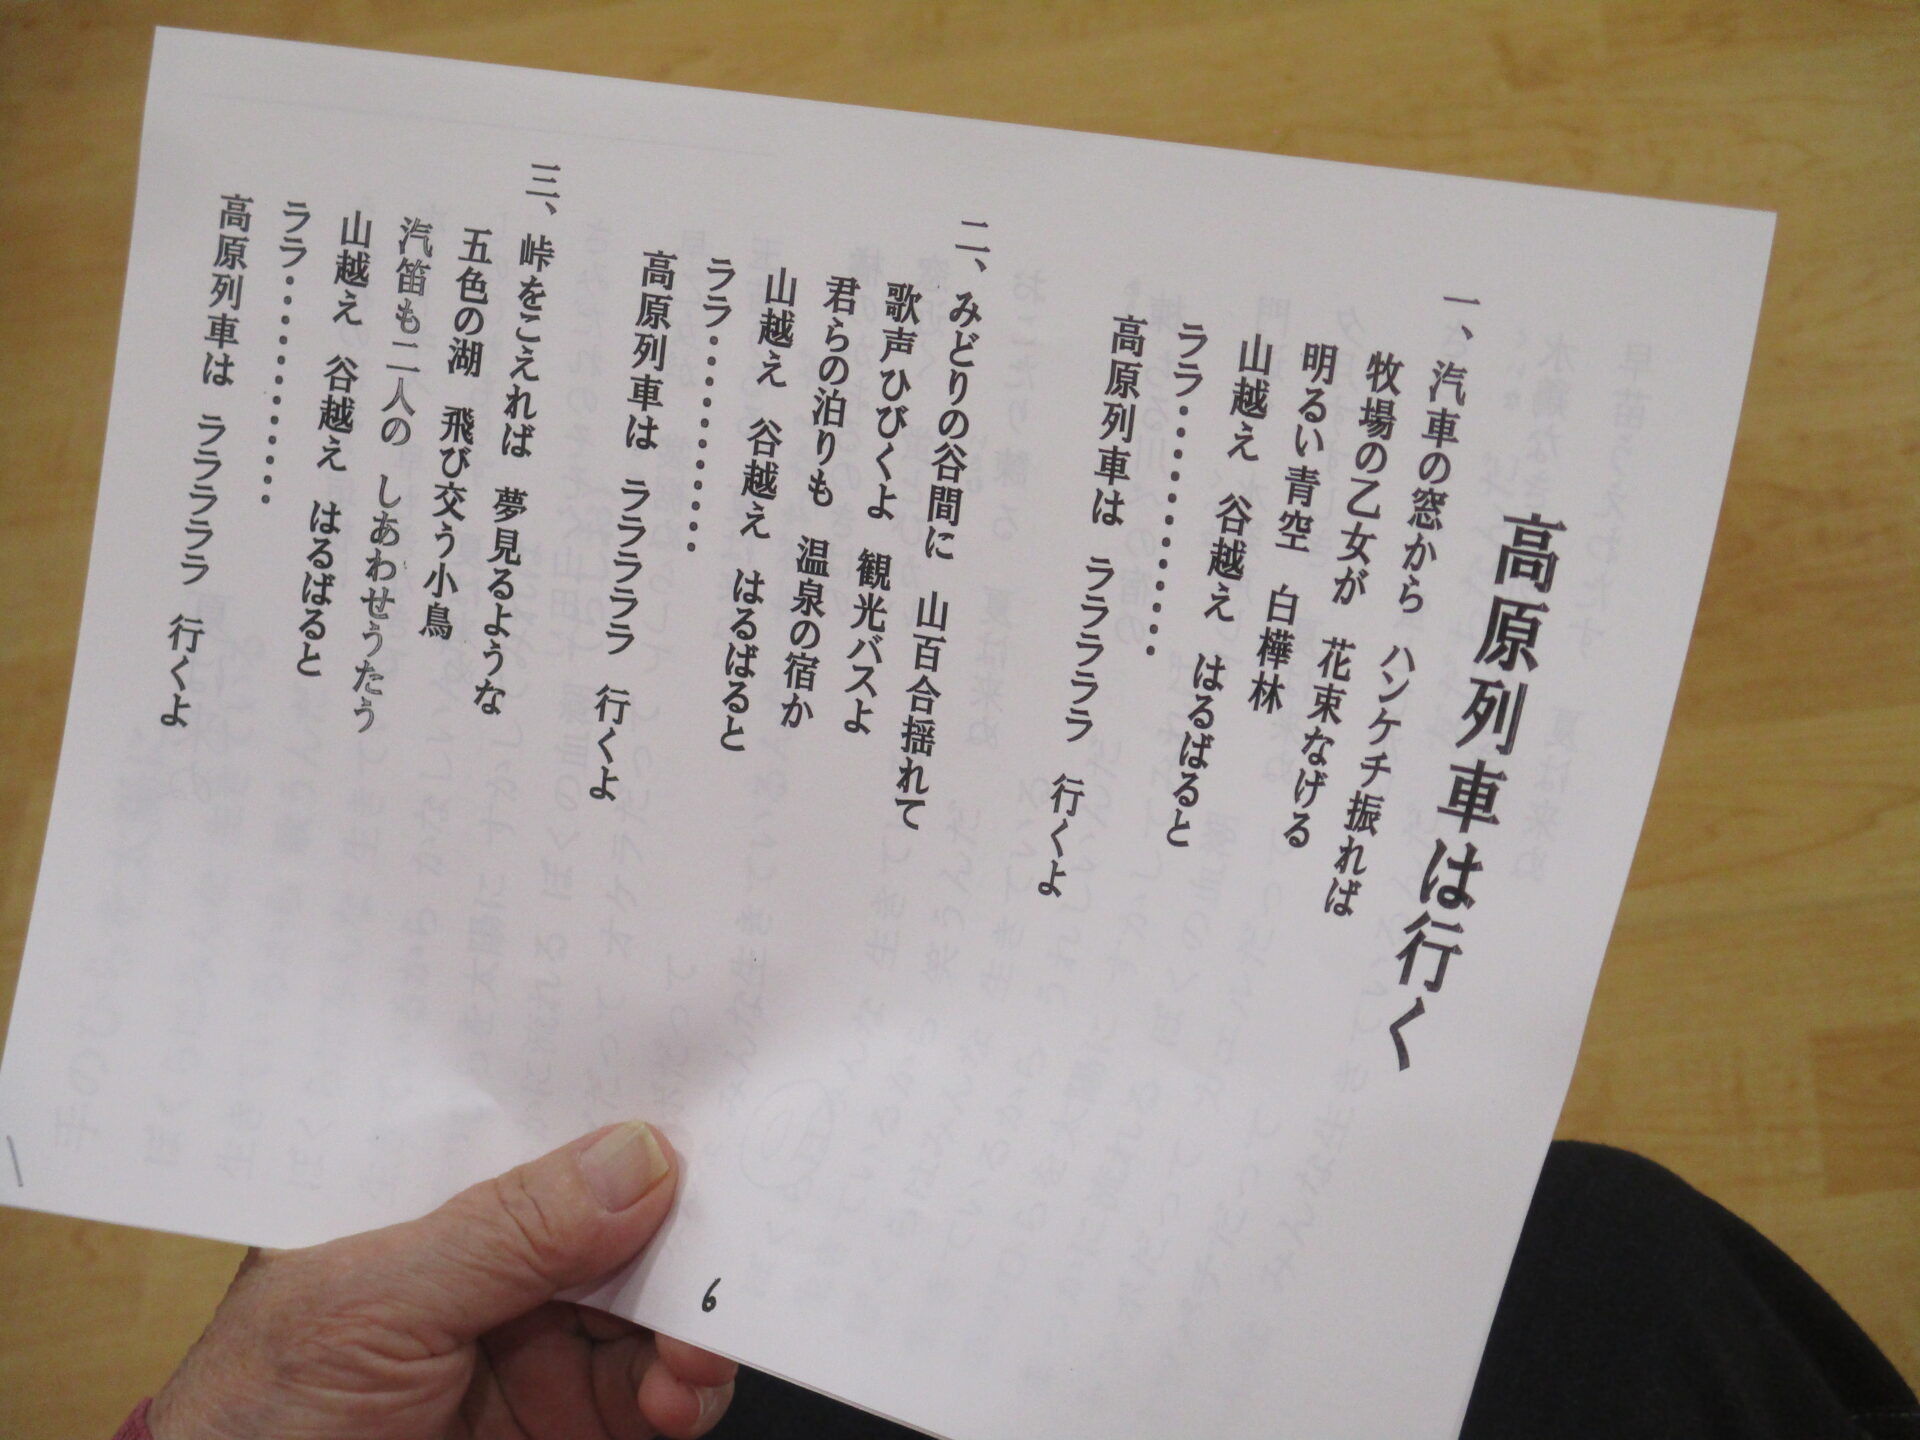 高原列車は行く
一、汽車の窓から ハンケチ振れば
牧場の乙女が 花束なげる
明るい青空 白樺林
山越え 谷越え はるばると
ララ‥‥‥‥‥‥
高原列車は ラララララ 行くよ
二、みどりの谷間に 山百合揺れて
歌声ひびくよ 観光バスよ
君らの泊りも 温泉の宿か
山越え 谷越え はるばると
ララ‥‥‥‥‥‥
高原列車は ラララララ 行くよ
三、峠をこえれば 夢見るような
五色の湖 飛び交う小鳥
汽笛も二人の しあわせうたう
山越え 谷越え はるばると
ララ‥‥‥‥‥‥
高原列車は ラララララ 行くよ
6